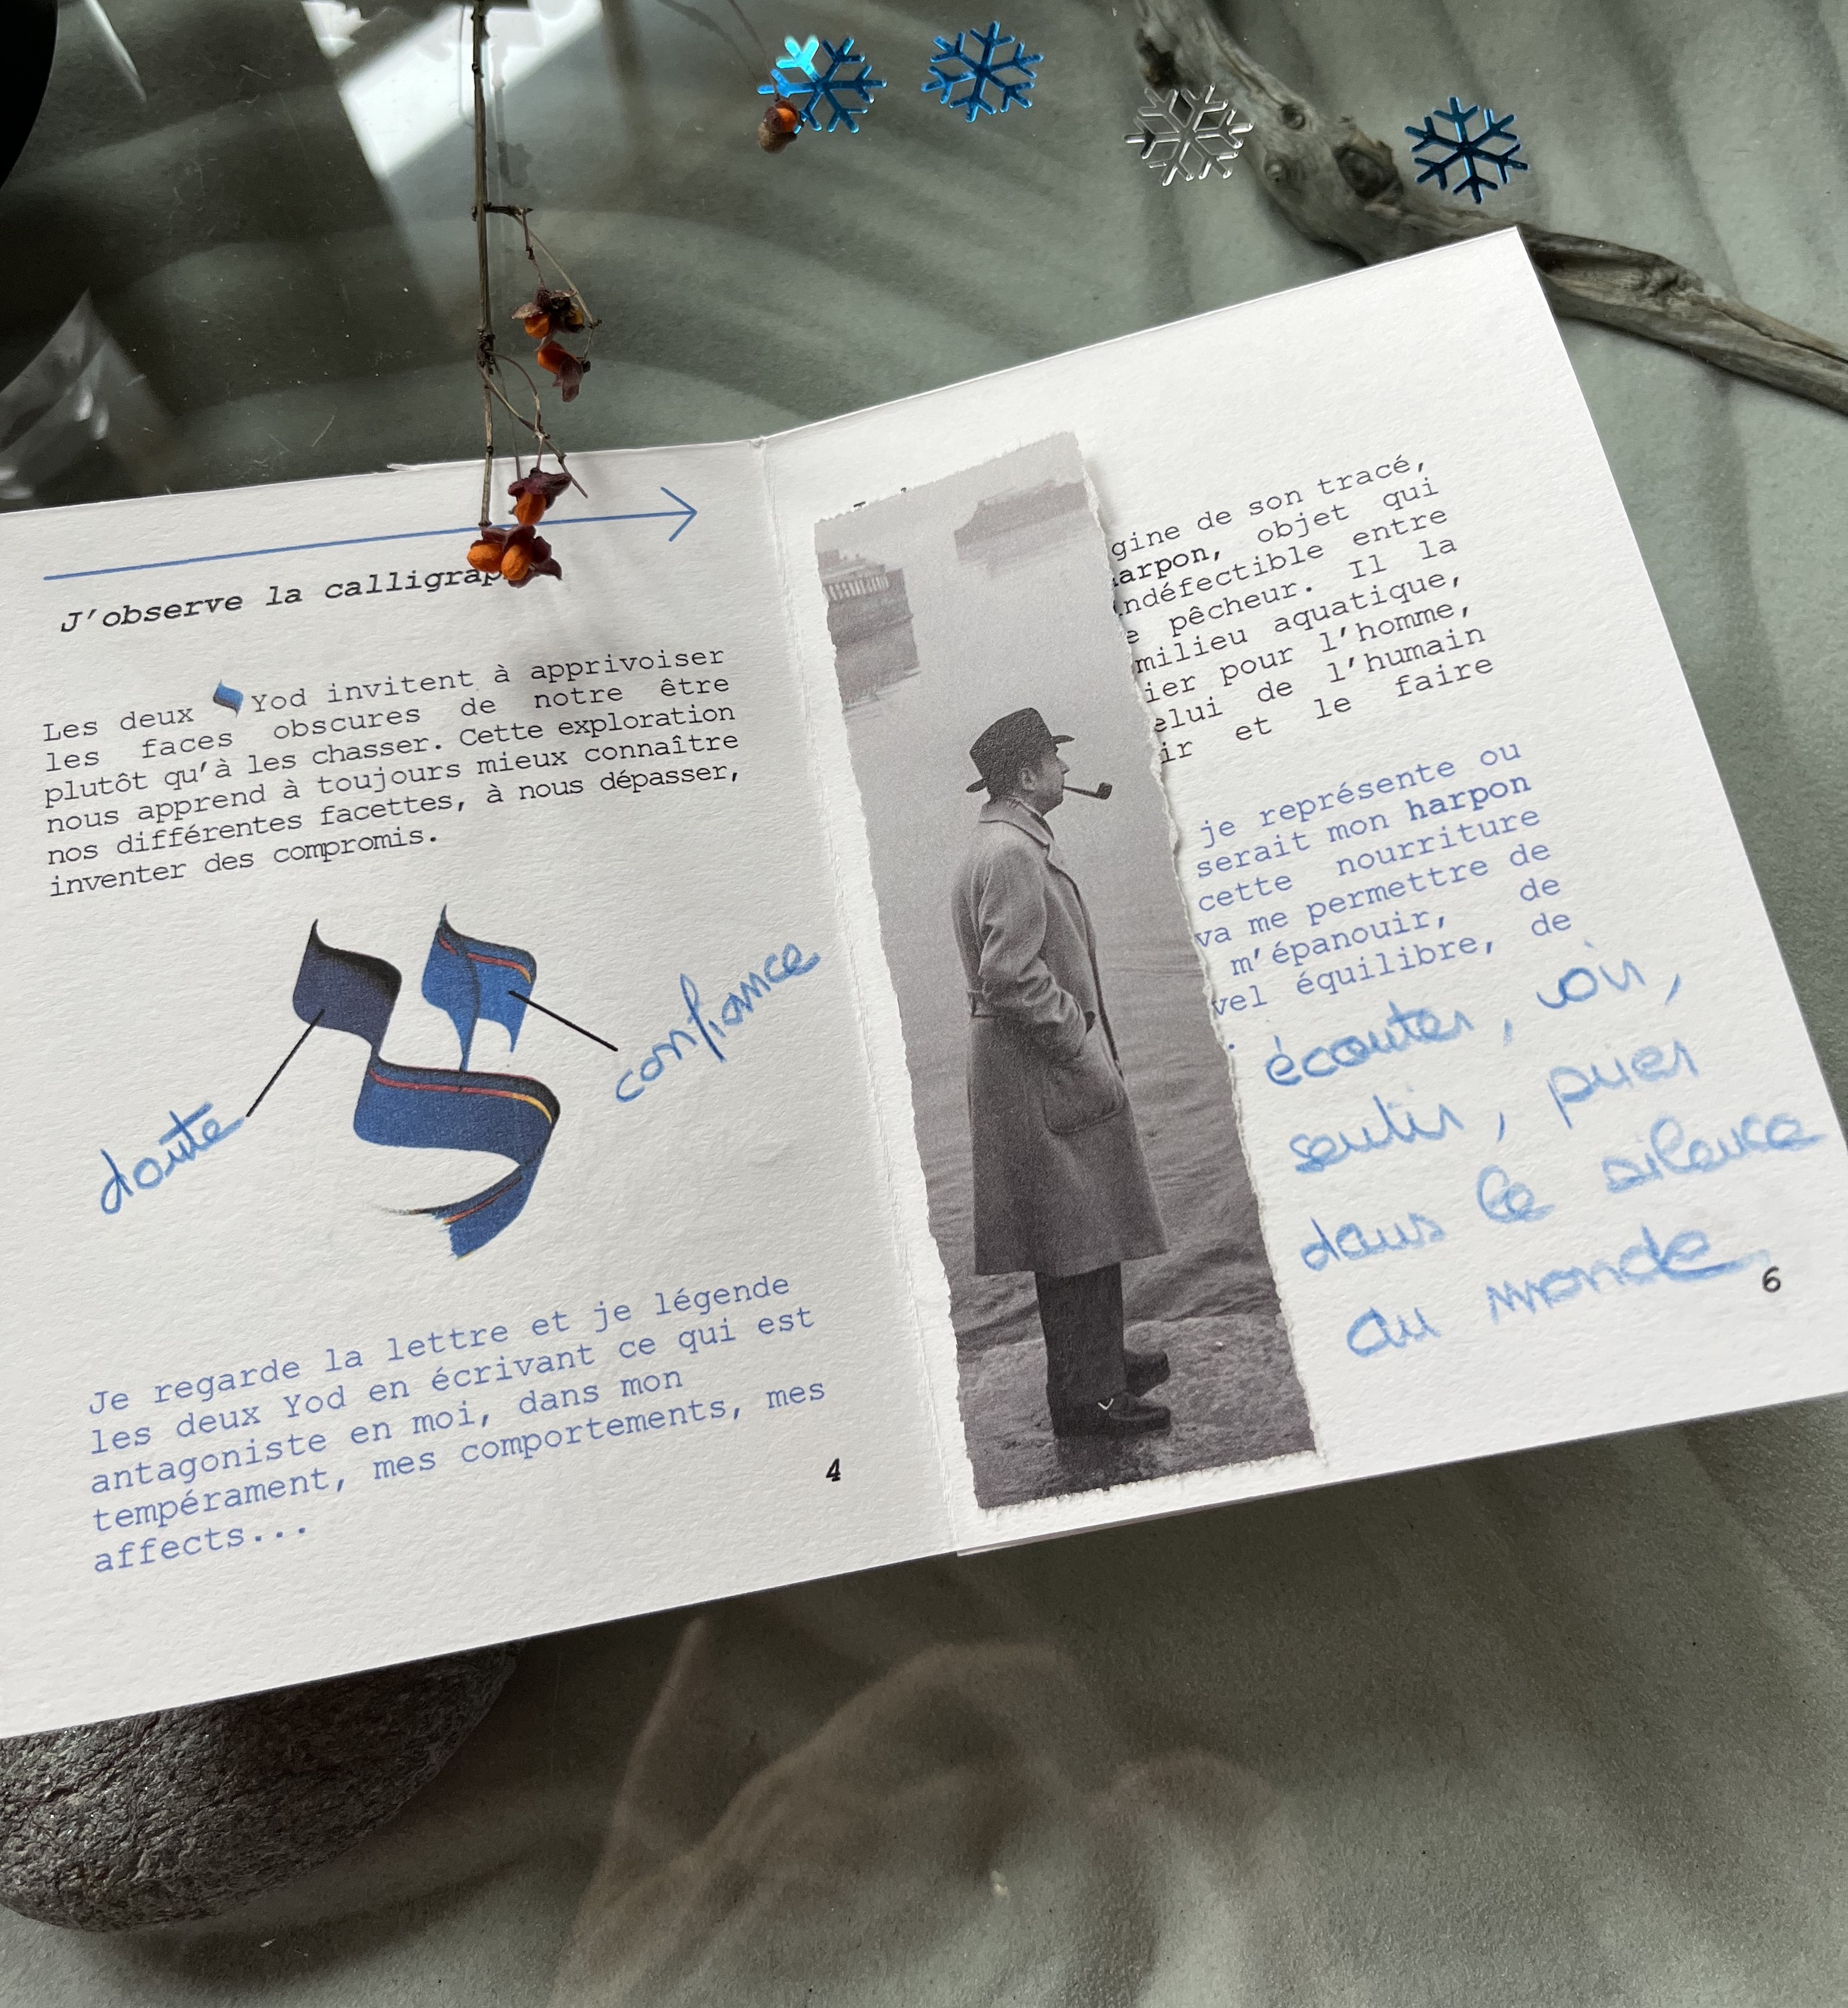 J'observe la calligrap
Les deux Yod invitent à apprivoiser
les faces obscures de notre être
plutôt qu'à les chasser. Cette exploration
nous apprend à toujours mieux connaître
nos différentes facettes, à nous dépasser,
inventer des compromis.
doute
confiance
Je regarde la lettre et je légende
les deux Yod en écrivant ce qui est
antagoniste en moi, dans mon
tempérament, mes comportements, mes
affects...
4
gine de son tracé,
arpon, objet qui
indéfectible entre
e pêcheur. Il la
milieu aquatique,
ier pour l'homme,
elui de l'humain
ir et le faire
je représente ou
serait mon harpon
cette nourriture
va me permettre de
m'épanouir, de
vel équilibre, de
écouter, voir,
sentir, prier
dans le silence
au monde
6